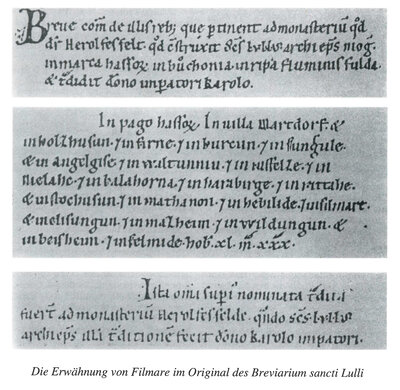 Breue com̄ de illis reb; que ꝑtinent ad monasteriū qđ
dr̄ Herolfesfelt. qđ cſtruxit sc̄s lullus archiep̄s moḡ.
in marca hassoꝝ in bůchonia. in ripa fluminis fulda.
& tradidit dōno imꝑatori karolo.
In pago hassoꝝ. In uilla Martdorf. &
in holzhusun. ⁊ in uerne. ⁊ in burcun. ⁊ in sungule.
& in angelgise. ⁊ in uultunniu. ⁊ in russelze. ⁊ in
uielahe. ⁊ in balahorna. ⁊ in haraburge. ⁊ in rittahe.
& in stochusun. ⁊ in mathanon. ⁊ in hebilide. ⁊ uilmare.
& melisungun. ⁊ in malzheim. ⁊ in wildungun. &
in beisheim. ⁊ in felmide. hob. xl. m̄. xxx.
Ista om̄ia suꝑi nominata tradita
fuer̄t ad monasteriū Herolfesfelde. qn̄do sc̄s lullus
archiep̄s illi traditionē fecit dōno karolo imꝑatori.
Die Erwähnung von Filmare im Original des Breviarium sancti Lulli